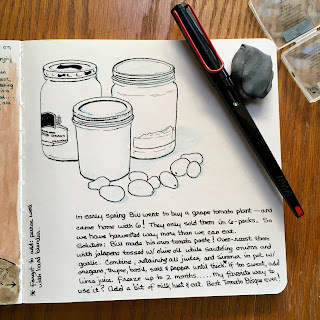 In early Spring Bill went to buy a grape tomato plant — and
came home with 6! They only sold them in 6-packs. So
we have harvested way more than we can eat.
Solution: Bill made his own tomato paste! Oven-roast them
with jalapeno tossed w/ olive oil while sautéing onions and
garlic. Combine, retaining all juices, and simmer in pot w/
oregano, thyme, basil, salt & pepper until thick.* If too sweet, add
lime juice. Freeze up to 2 months..... My favorite way to
use it? Add a bit of milk, heat & eat. Best Tomato Bisque ever!
* Forgot to add: puree well
w/ blender